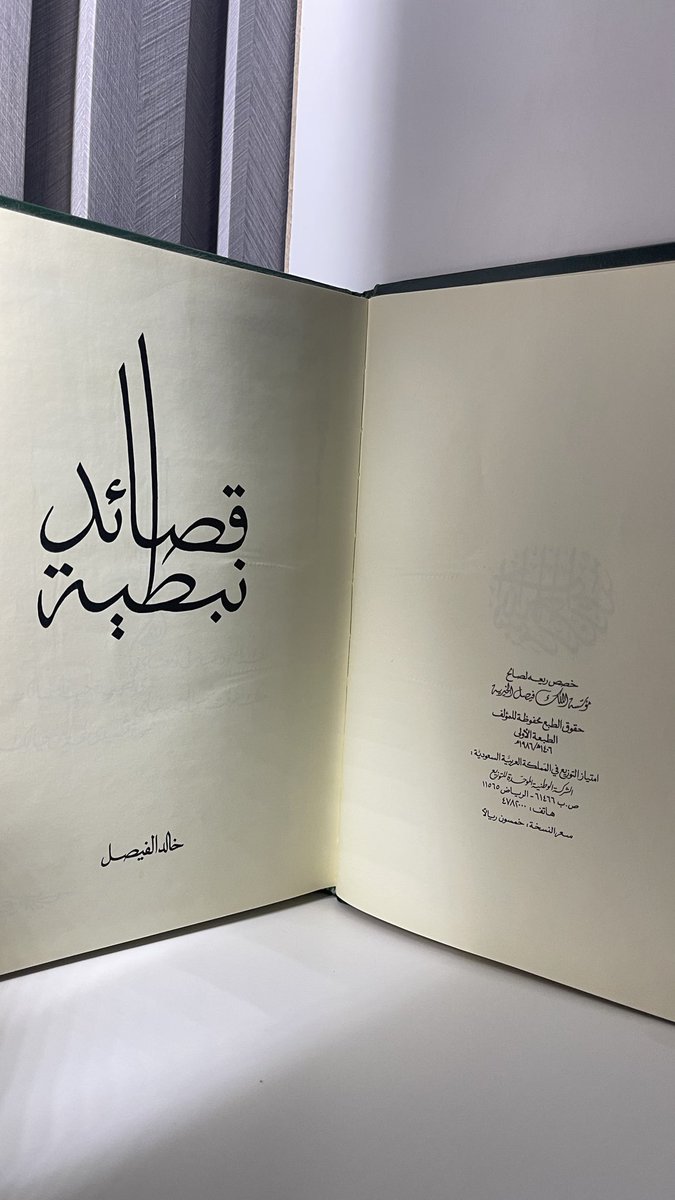 قصائد
نبطية
خالد الفيصل
خصص ريعه لصالح
مؤسسة الملك فيصل الخيرية
حقوق الطبع محفوظة للمؤلف
الطبعة الأولى
١٤٠٦هـ/١٩٨٦م
امتياز التوزيع في المملكة العربية السعودية:
الشركة الوطنية الموحدة للتوزيع
ص.ب ٦١٤٦٦ - الرياض ١١٥٦٥
هاتف: ٤٧٨٢٠٠٠
سعر النسخة: خمسون ريالا